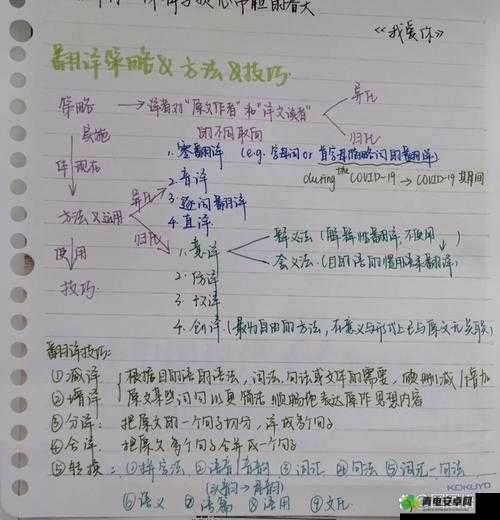 《我爱你》
翻译策略&方法&技巧
策略 → 译者对"原文作者"和"译文读者"的不同取向
异化
归化
实施
体现在
1. 零翻译 (e.g. 字母词 or 首字母缩略词的翻译)
during the COVID-19 → COVID-19期间
异化
2. 音译
3. 逐词翻译
方法&运用
4. 直译
归化
1. 意译
释义法 (解释性翻译,不使用
含义法 (目的语的惯用语来翻译)
使用
2. 仿译
技巧
3. 改译
4. 创译 (最为自由的方法,在意义与形式上已与原文无关联)
翻译技巧:
①减译
②增译
根据目的语的语法,词法,句法或文体的需要,顺删减/增加
原文某些词句以更简洁顺畅地表达原作思想内容
③分译: 把原文的一个句子切分,译成多个句子
④合译: 把原文多个句子合并成一个句子
⑤转换: ①拼字法 ②语音/音韵 ③词汇 ④句法 ⑤词元—句法
⑥语义 ⑦语篇 ⑧语用 ⑨文化
KOKUYO
青电安卓网